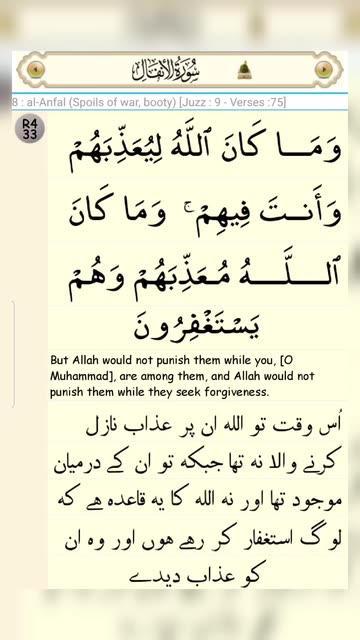 سُورَةُ الأَنفَال
8 : al-Anfal (Spoils of war, booty) [Juzz : 9 - Verses :75]
R4
33
وَمَـــا كَانَ ٱللَّهُ لِيُعَذِّبَهُمْ
وَأَنـتَ فِيهِمْ ۚ وَمَا كَانَ
ٱلـــلَّـــهُ مُـعَذِّبَهُمْ وَهُمْ
يَسْتَغْفِرُونَ
But Allah would not punish them while you, [O
Muhammad], are among them, and Allah would not
punish them while they seek forgiveness.
اُس وقت تو الله ان پر عذاب نازل
کرنے والا نہ تھا جبکہ تو ان کے درمیان
موجود تھا اور نہ الله کا یہ قاعدہ ہے کہ
لوگ استغفار کر رہے ہوں اور وہ ان
کو عذاب دیدے